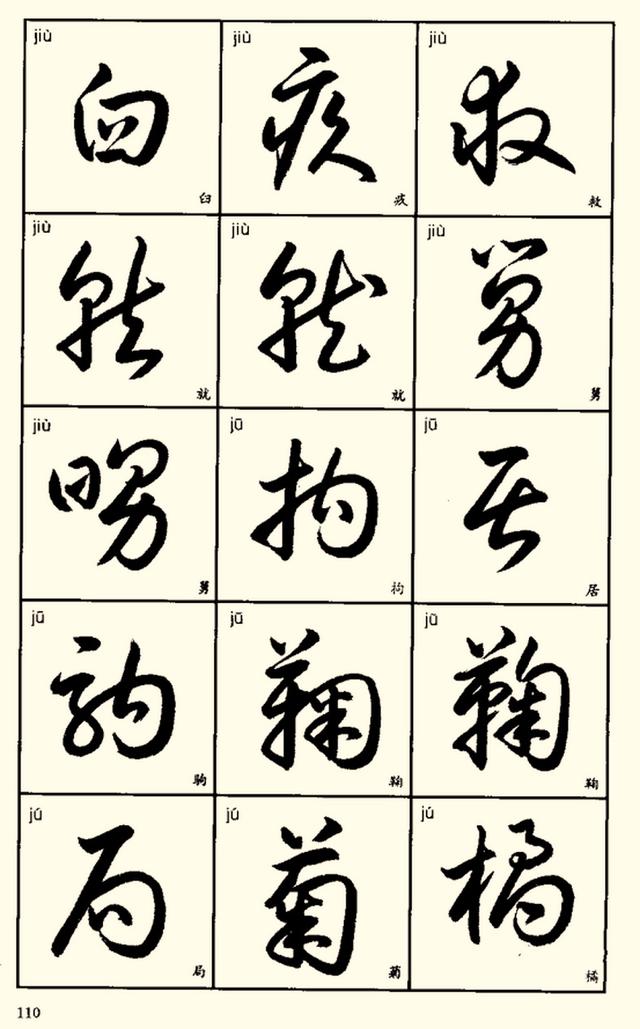 jiù jiù jiù
臼 疚 救
jiù jiù jiù
就 就 舅
jiù jū jū
舅 拘 居
jū jū jū
驹 鞠 鞠
jú jú jú
局 菊 橘
110